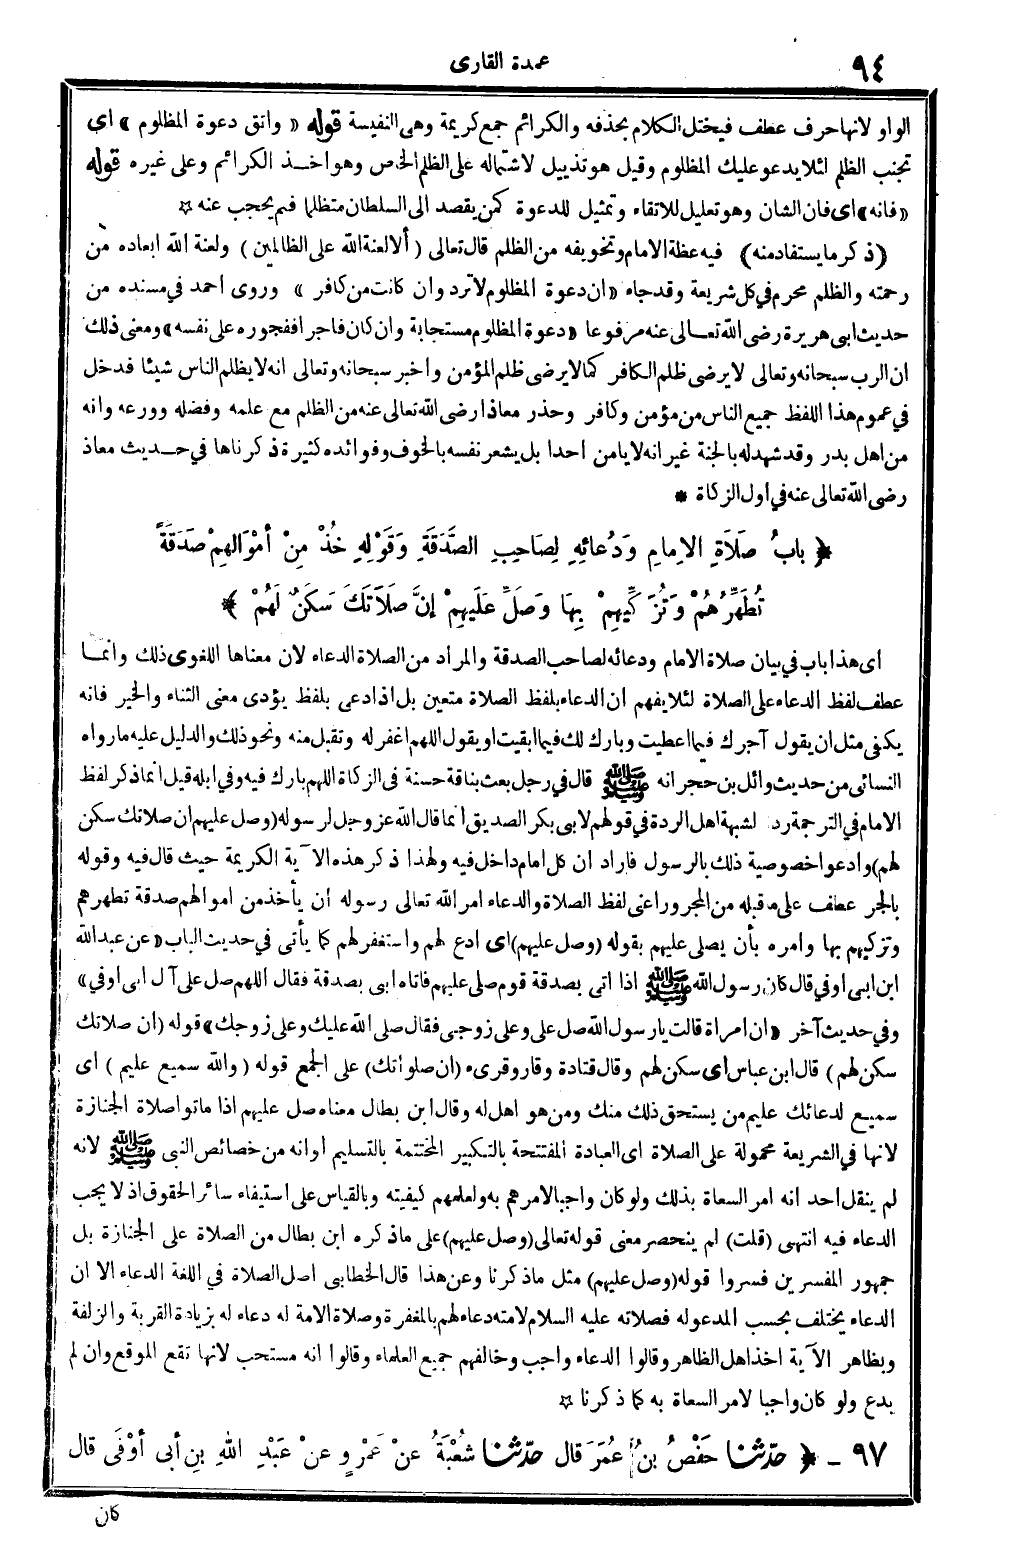 ٩٤
عمدة القارى
الواو لانها حرف عطف فيختل الكلام بحذفه والكرائم جمع كريمة وهى النفيسة قوله « واتق دعوة المظلوم » اى
تجنب الظلم لئلا يدعو عليك المظلوم وقيل هو تذييل لاشتماله على الظلم الخاص وهو اخذ الكرائم وعلى غيره قوله
«فانه» اى فان الشان وهو تعليل للاتقاء وتمثيل للدعوة كمن يقصد الى السلطان متظلما فلم يحجب عنه ☆
(ذكر ما يستفاد منه) فيه عظة الامام وتخويفه من الظلم قال تعالى ( ألا لعنة الله على الظالمين ) ولعنة الله ابعاده من
رحمته والظلم محرم في كل شريعة وقد جاء «ان دعوة المظلوم لا ترد وان كانت من كافر » وروى احمد في مسنده من
حديث ابى هريرة رضى الله تعالى عنه مرفوعا «دعوة المظلوم مستجابة وان كان فاجرا ففجوره على نفسه» ومعنى ذلك
ان الرب سبحانه وتعالى لا يرضى ظلم الكافر كما لا يرضى ظلم المؤمن واخبر سبحانه وتعالى انه لا يظلم الناس شيئا فدخل
في عموم هذا اللفظ جميع الناس من مؤمن وكافر وحذر معاذا رضى الله تعالى عنه من الظلم مع علمه وفضله وورعه وانه
من اهل بدر وقد شهد له بالجنة غير انه لا يامن احدا بل يشعر نفسه بالخوف وفوائده كثيرة ذكرناها في حديث معاذ
رضى الله تعالى عنه في اول الزكاة *
﴿ بابُ صَلَاةِ الإِمامِ وَدُعائِهِ لِصَاحِبِ الصَّدَقَةِ وَقَوْلِهِ خُذْ مِنْ أمْوَالِهِمْ صَدَقَةً
تُطَهِّرُهُمْ وَتُزَكِّيهِمْ بِهَا وَصَلِّ عَلَيهِمْ إنَّ صَلَاتَكَ سَكَنٌ لَهُمْ ﴾
اى هذا باب في بيان صلاة الامام ودعائه لصاحب الصدقة والمراد من الصلاة الدعاء لان معناها اللغوى ذلك وانما
عطف لفظ الدعاء على الصلاة لئلا يفهم ان الدعاء بلفظ الصلاة متعين بل اذا دعى بلفظ يؤدى معنى الثناء والخير فانه
يكفى مثل ان يقول آجرك فيما اعطيت وبارك لك فيما ابقيت او يقول اللهم اغفر له وتقبل منه ونحو ذلك والدليل عليه ما رواه
النسائى من حديث وائل بن حجر انه ﷺ قال في رجل بعث بناقة حسنة فى الزكاة اللهم بارك فيه وفي ابله قيل انما ذكر لفظ
الامام في الترجمة رد لشبهة اهل الردة في قولهم لابى بكر الصديق انما قال الله عز وجل لرسوله (وصل عليهم ان صلاتك سكن
لهم) وادعوا خصوصية ذلك بالرسول فاراد ان كل امام داخل فيه ولهذا ذكر هذه الآية الكريمة حيث قال فيه وقوله
بالجر عطف على ما قبله من المجرور اعنى لفظ الصلاة والدعاء امر الله تعالى رسوله ان يأخذ من اموالهم صدقة تطهرهم
وتزكيهم بها وامره بأن يصلى عليهم بقوله (وصل عليهم) اى ادع لهم واستغفر لهم كما يأتى في حديث الباب «عن عبد الله
ابن ابى اوفي قال كان رسول الله ﷺ اذا اتى بصدقة قوم صلى عليهم فاتاه ابى بصدقة فقال اللهم صل على آل ابى اوفي»
وفي حديث آخر «ان امراة قالت يا رسول الله صل على وعلى زوجى فقال صلى الله عليك وعلى زوجك» قوله (ان صلاتك
سكن لهم) قال ابن عباس اى سكن لهم وقال قتادة وقار وقرىء (ان صلواتك) على الجمع قوله ( والله سميع عليم ) اى
سميع لدعائك عليم من يستحق ذلك منك ومن هو اهل له وقال ابن بطال معناه صل عليهم اذا ماتوا صلاة الجنازة
لانها في الشريعة محمولة على الصلاة اى العبادة المفتتحة بالتكبير المختتمة بالتسليم او انه من خصائص النبى ﷺ لانه
لم ينقل احد انه امر السعاة بذلك ولو كان واجبا لامرهم به ولعلمهم كيفيته وبالقياس على استيفاء سائر الحقوق اذ لا يجب
الدعاء فيه انتهى (قلت) لم ينحصر معنى قوله تعالى (وصل عليهم) على ما ذكره ابن بطال من الصلاة على الجنازة بل
جمهور المفسرين فسروا قوله (وصل عليهم) مثل ما ذكرنا وعن هذا قال الخطابى اصل الصلاة في اللغة الدعاء الا ان
الدعاء يختلف بحسب المدعو له فصلاته عليه السلام لامته دعاء لهم بالمغفرة وصلاة الامة له دعاء له بزيادة القربة والزلفة
وبظاهر الآية اخذ اهل الظاهر وقالوا الدعاء واجب وخالفهم جميع العلماء وقالوا انه مستحب لانها تقع الموقع وان لم
يدع ولو كان واجبا لامر السعاة به كما ذكرنا ☆
٩٧ - ﴿ حدّثنا حَفْصُ بنُ عُمَرَ قال حدّثنا شُعْبَةُ عنْ عَمْرٍو عنْ عَبْدِ اللهِ بنِ أبى أوْفَى قال
كان